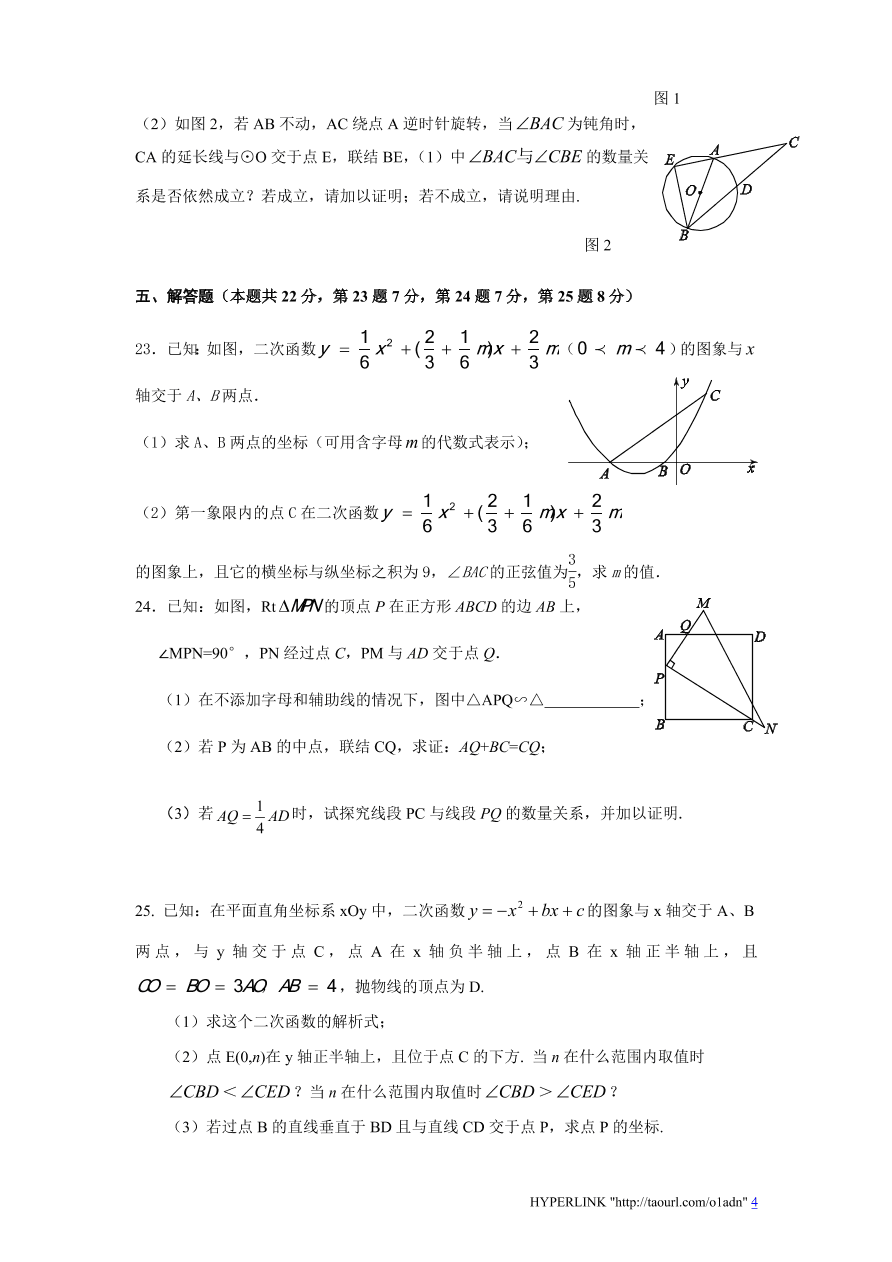 图 1
（2）如图 2，若 AB 不动，AC 绕点 A 逆时针旋转，当∠BAC 为钝角时，
CA 的延长线与⊙O 交于点 E，联结 BE，（1）中∠BAC与∠CBE 的数量关
系是否依然成立？若成立，请加以证明；若不成立，请说明理由.
E A C
O D
B
图 2
五、解答题（本题共 22 分，第 23 题 7 分，第 24 题 7 分，第 25 题 8 分）
23．已知：如图，二次函数 y = 1/6 x² + (2/3 + 1/6 m)x + 2/3 m（0 ≺ m ≺ 4）的图象与 x
轴交于 A、B 两点．
y C
A B O x
（1）求 A、B 两点的坐标（可用含字母 m 的代数式表示）；
（2）第一象限内的点 C 在二次函数 y = 1/6 x² + (2/3 + 1/6 m)x + 2/3 m
的图象上，且它的横坐标与纵坐标之积为 9，∠BAC 的正弦值为 3/5，求 m 的值．
24．已知：如图，Rt ΔMPN 的顶点 P 在正方形 ABCD 的边 AB 上，
M
A Q D
P
B C N
∠MPN=90°，PN 经过点 C，PM 与 AD 交于点 Q．
（1）在不添加字母和辅助线的情况下，图中△APQ∽△____________；
（2）若 P 为 AB 的中点，联结 CQ，求证：AQ+BC=CQ；
（3）若 AQ = 1/4 AD 时，试探究线段 PC 与线段 PQ 的数量关系，并加以证明.
25. 已知：在平面直角坐标系 xOy 中，二次函数 y = −x² + bx + c 的图象与 x 轴交于 A、B
两点，与 y 轴交于点 C，点 A 在 x 轴负半轴上，点 B 在 x 轴正半轴上，且
CO = BO = 3AO, AB = 4，抛物线的顶点为 D.
（1）求这个二次函数的解析式；
（2）点 E(0,n)在 y 轴正半轴上，且位于点 C 的下方. 当 n 在什么范围内取值时
∠CBD＜∠CED？当 n 在什么范围内取值时∠CBD＞∠CED？
（3）若过点 B 的直线垂直于 BD 且与直线 CD 交于点 P，求点 P 的坐标.
HYPERLINK "http://taourl.com/o1adn" 4